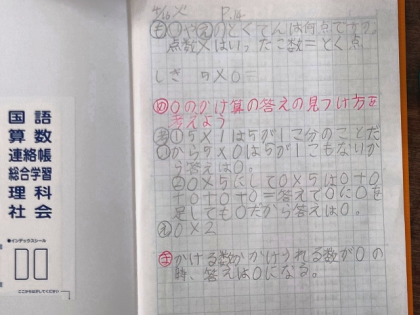 国語
算数
連絡帳
総合学習
理科
社会
●インデックスシール
ここからはがしてください
4/16 火 P.14
点数×はいったこ数=とく点
しき 5×0=
め 0のかけ算の答えの見つけ方を
考えよう
①5×1は5が1こ分のことだ
から5×0は5が1こもないか
ら答えは0。
②0×5にして0×5は0+0
+0+0+0=答えて0に0を
足しても0だから答えは0。
0×2
ま かける数かかけられる数が0の
時、答えは0になる。